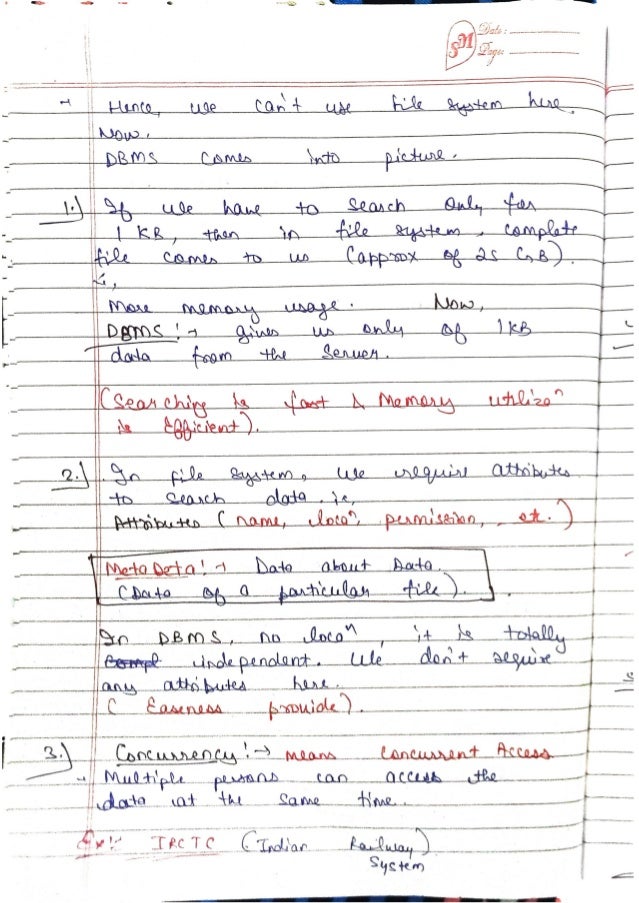 SM Date:
Page:
→ Hence, we can't use file system here.
Now,
DBMS comes into picture.
1.) If we have to search only for
1 KB, then in file system, complete
file comes to us (approx of 25 GB).
i,
More memory usage. Now,
DBMS :→ gives us only of 1KB
data from the Server.
(Searching is fast & Memory utilizeⁿ
is Efficient).
2.) In file system, we require attributes
to search data. ie,
Attributes (name, locaⁿ, permission, , etc.)
MetaDeta :→ Data about Data.
(Data of a particular file).
In DBMS, no locaⁿ, it is totally
independent. We don't require
any attributes here.
( Easeness provide).
3.) Concurrency :→ means Concurrent Access
Multiple persons can access the
data at the same time.
Ex:- IRCTC (Indian Railway)
System